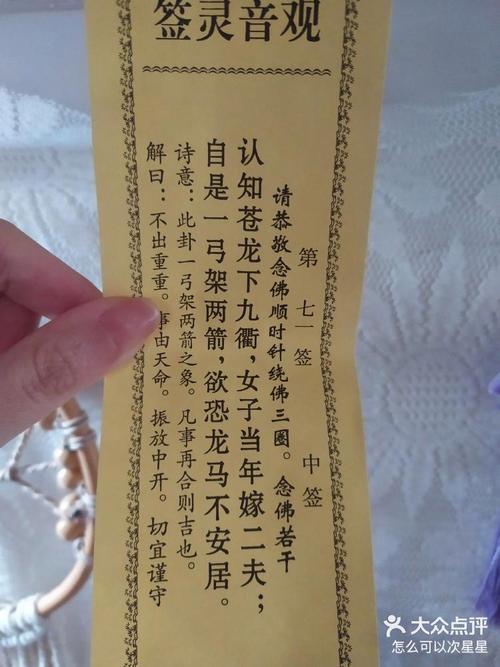 观音灵签
第七一签 中签
请恭敬念佛顺时针绕佛三圈。念佛若干
认知苍龙下九衢，女子当年嫁二夫；
自是一弓架两箭，欲恐龙马不安居。
诗意：此卦一弓架两箭之象。凡事再合则吉也。
解曰：不出重重。事由天命。振放中开。切宜谨守
大众点评
怎么可以次星星